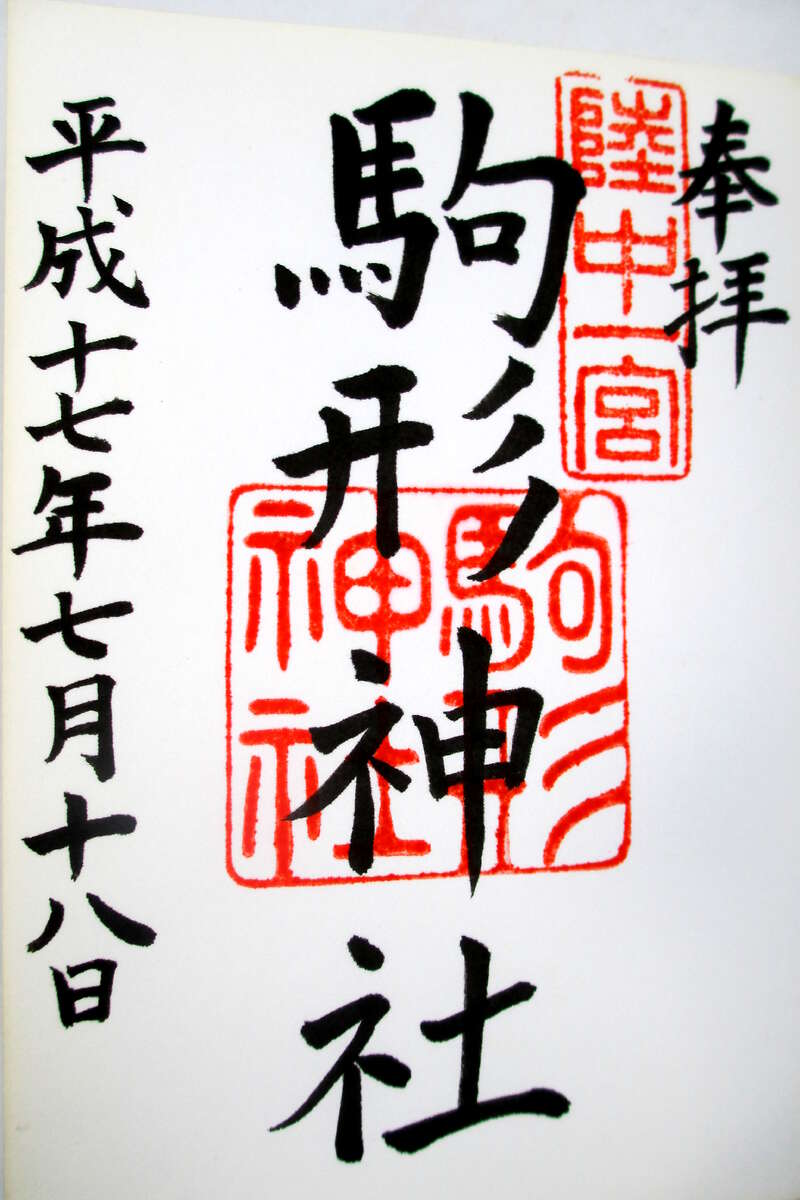 奉拝
陸中一宮
駒形神社
駒形
神社
平成十七年七月十八日